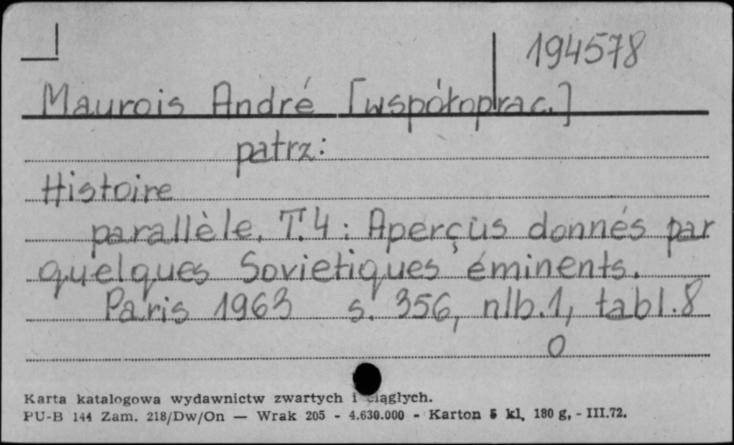 194578
Maurois André [współoprac.]
patrz:
Histoire
parallèle. T.4 : Aperçus donnés par
quelques Sovietiques éminents.
Paris 1963 s. 356, nlb.1, tabl.8
0
Karta katalogowa wydawnictw zwartych i ciągłych.
PU-B 144 Zam. 218/Dw/On — Wrak 205 - 4.630.000 - Karton 5 kl, 180 g, - III.72.